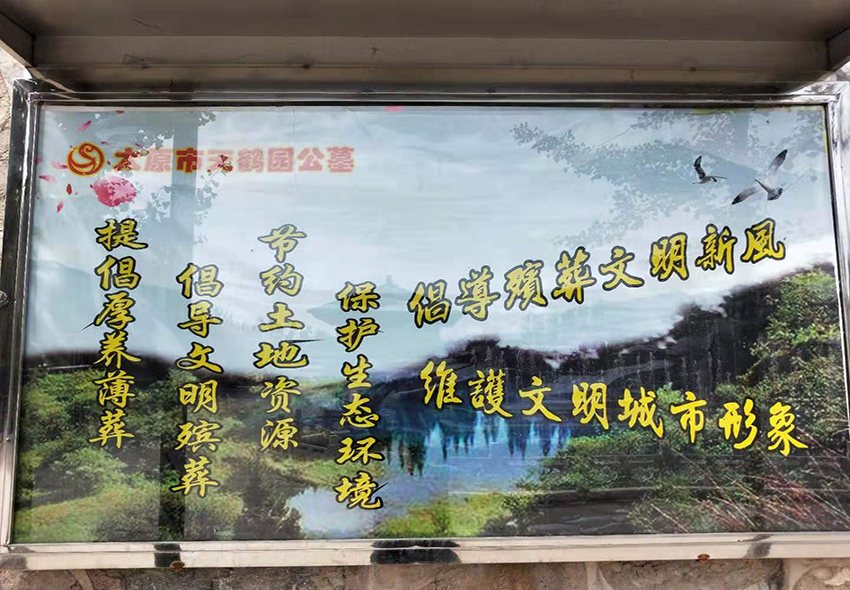 太原市天鹤园公墓
提倡厚养薄葬
倡导文明殡葬
节约土地资源
保护生态环境
倡導殯葬文明新風
維護文明城市形象